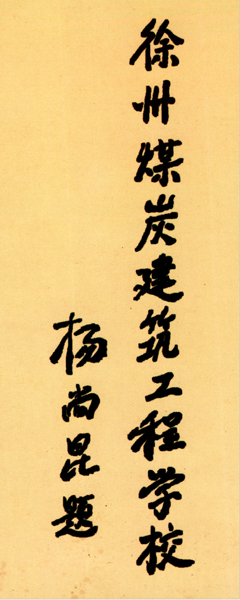 徐州煤炭建筑工程学校
杨尚昆题